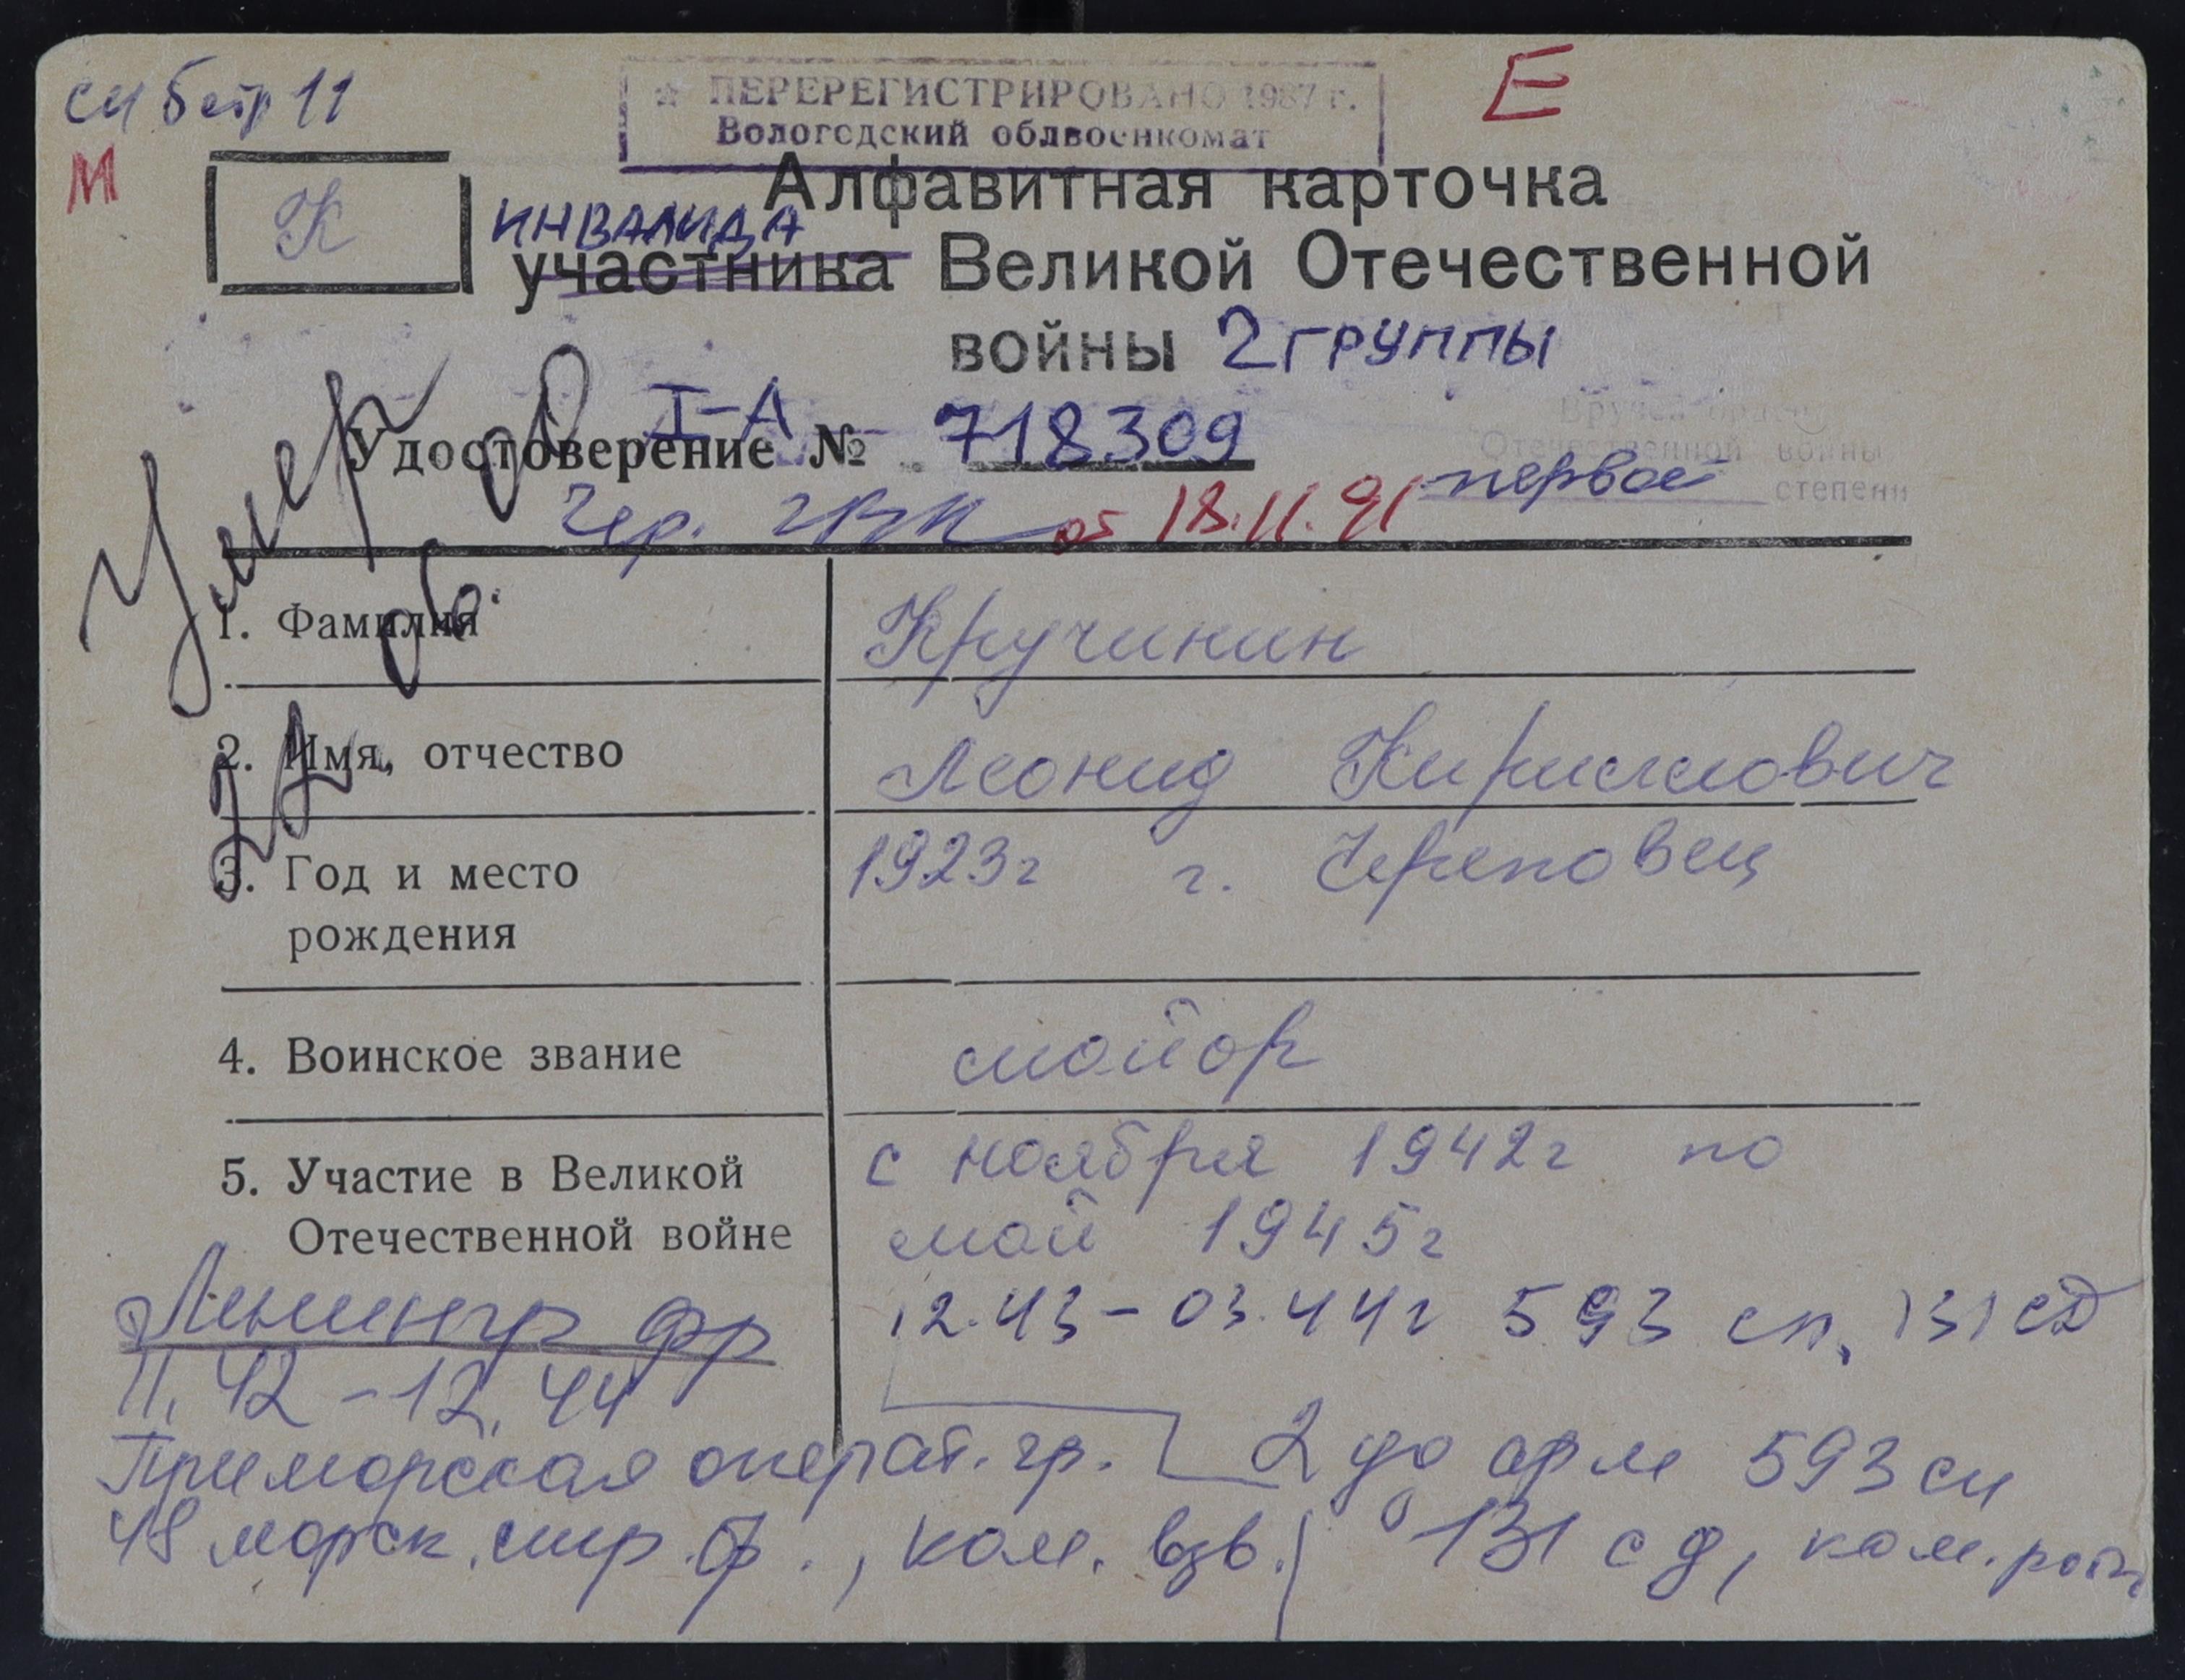 см бстр 11
ПЕРЕРЕГИСТРИРОВАНО 1987 г.
Вологодский облвоенкомат
Е
М
К
Алфавитная карточка
ИНВАЛИДА
участника Великой Отечественной
войны 2 ГРУППЫ
Умер 
I-А
Удостоверение № 718309
Отечественной войны
первой степени
Чер. ГВК от 18.11.91
1. Фамилия Кручинин
2. Имя, отчество Леонид Кириллович
3. Год и место рождения 1923г г. Череповец
4. Воинское звание майор
5. Участие в Великой Отечественной войне с ноября 1942г по
май 1945г
12.43-03.44г 593 сп, 131 СД
Ленингр фр
11.42-12.44
Приморская операт. гр. 2 уд арм 593 сп
48 морск. стр. б., ком. взв. 131 сд, ком. роты